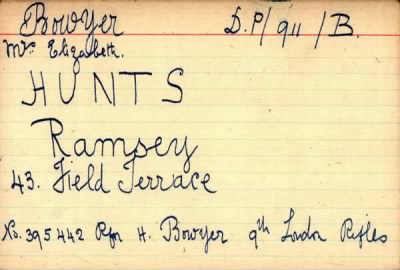 Bowyer D.P/911/B.
Mrs Elizabeth.
HUNTS
Ramsey
43. Field Terrace
No. 395442 Rfn H. Bowyer 9th London Rifles